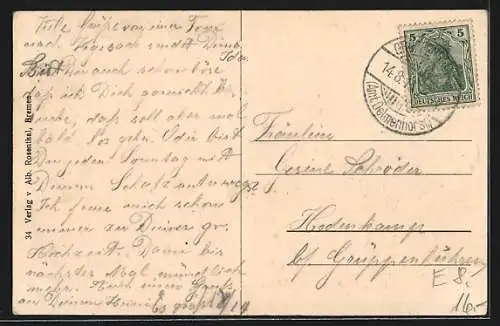 Viele Grüße von einer Tour
nach Hasbach sendet Deine
Ida.
Bist Du auch schon böse
daß ich Dich garnicht be-
suche, daß soll aber mal
bald los gehn. Oder bist
Du jeden Sonntag mit
Deinem Schatz unterwegs?
Ich freue mich schon
immer zu Deiner gr.
Hochzeit. Dann bis
nächstes Mal mündlich
mehr. Auch einen Gruß
an Deinen Heini
Es grüßt
34 Verlag v Alb. Rosenthal, Bremen
5 5
DEUTSCHES REICH
14.8.
(Amt Delmenhorst)
Fräulein
Gesine Schröder
Hedenkamp
b/ Gruppenbühren
E 8.-
16.-